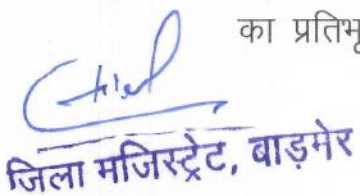 का प्रतिभू
जिला मजिस्ट्रेट, बाड़मेर